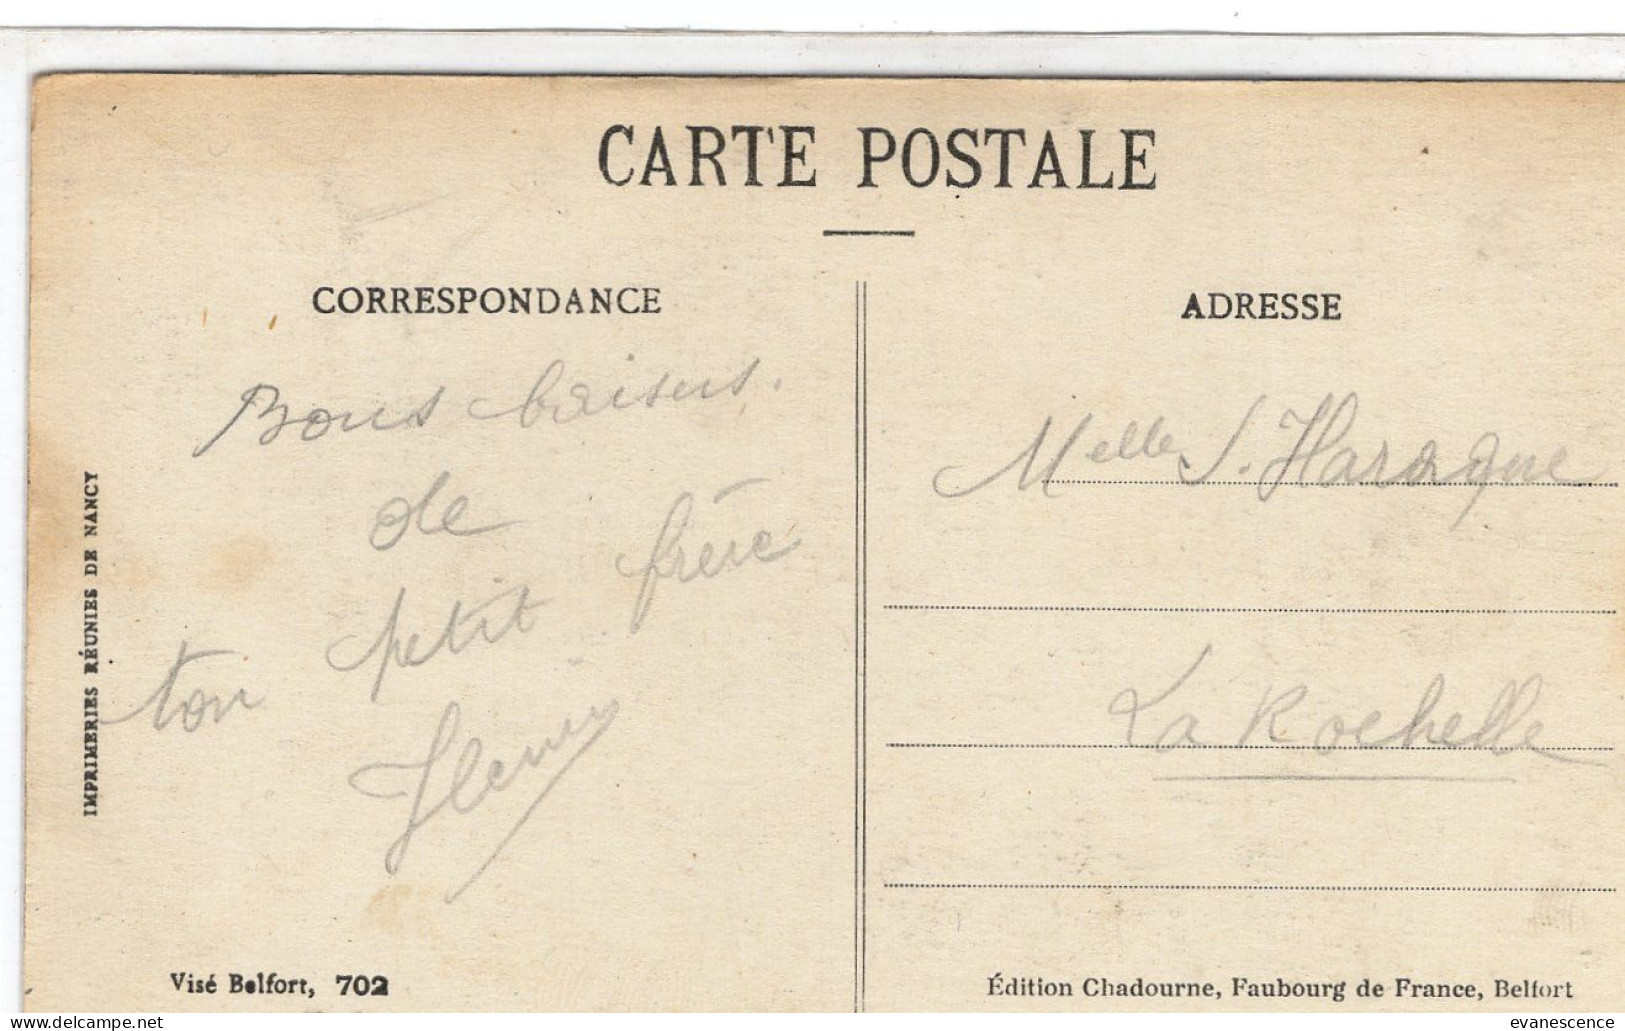 CARTE POSTALE
CORRESPONDANCE
Bons baisers.
de
ton petit frère
IMPRIMERIES RÉUNIES DE NANCY
Visé Belfort, 702
ADRESSE
Melle S. Haraque
La Rochelle
Édition Chadourne, Faubourg de France, Belfort
evanescence